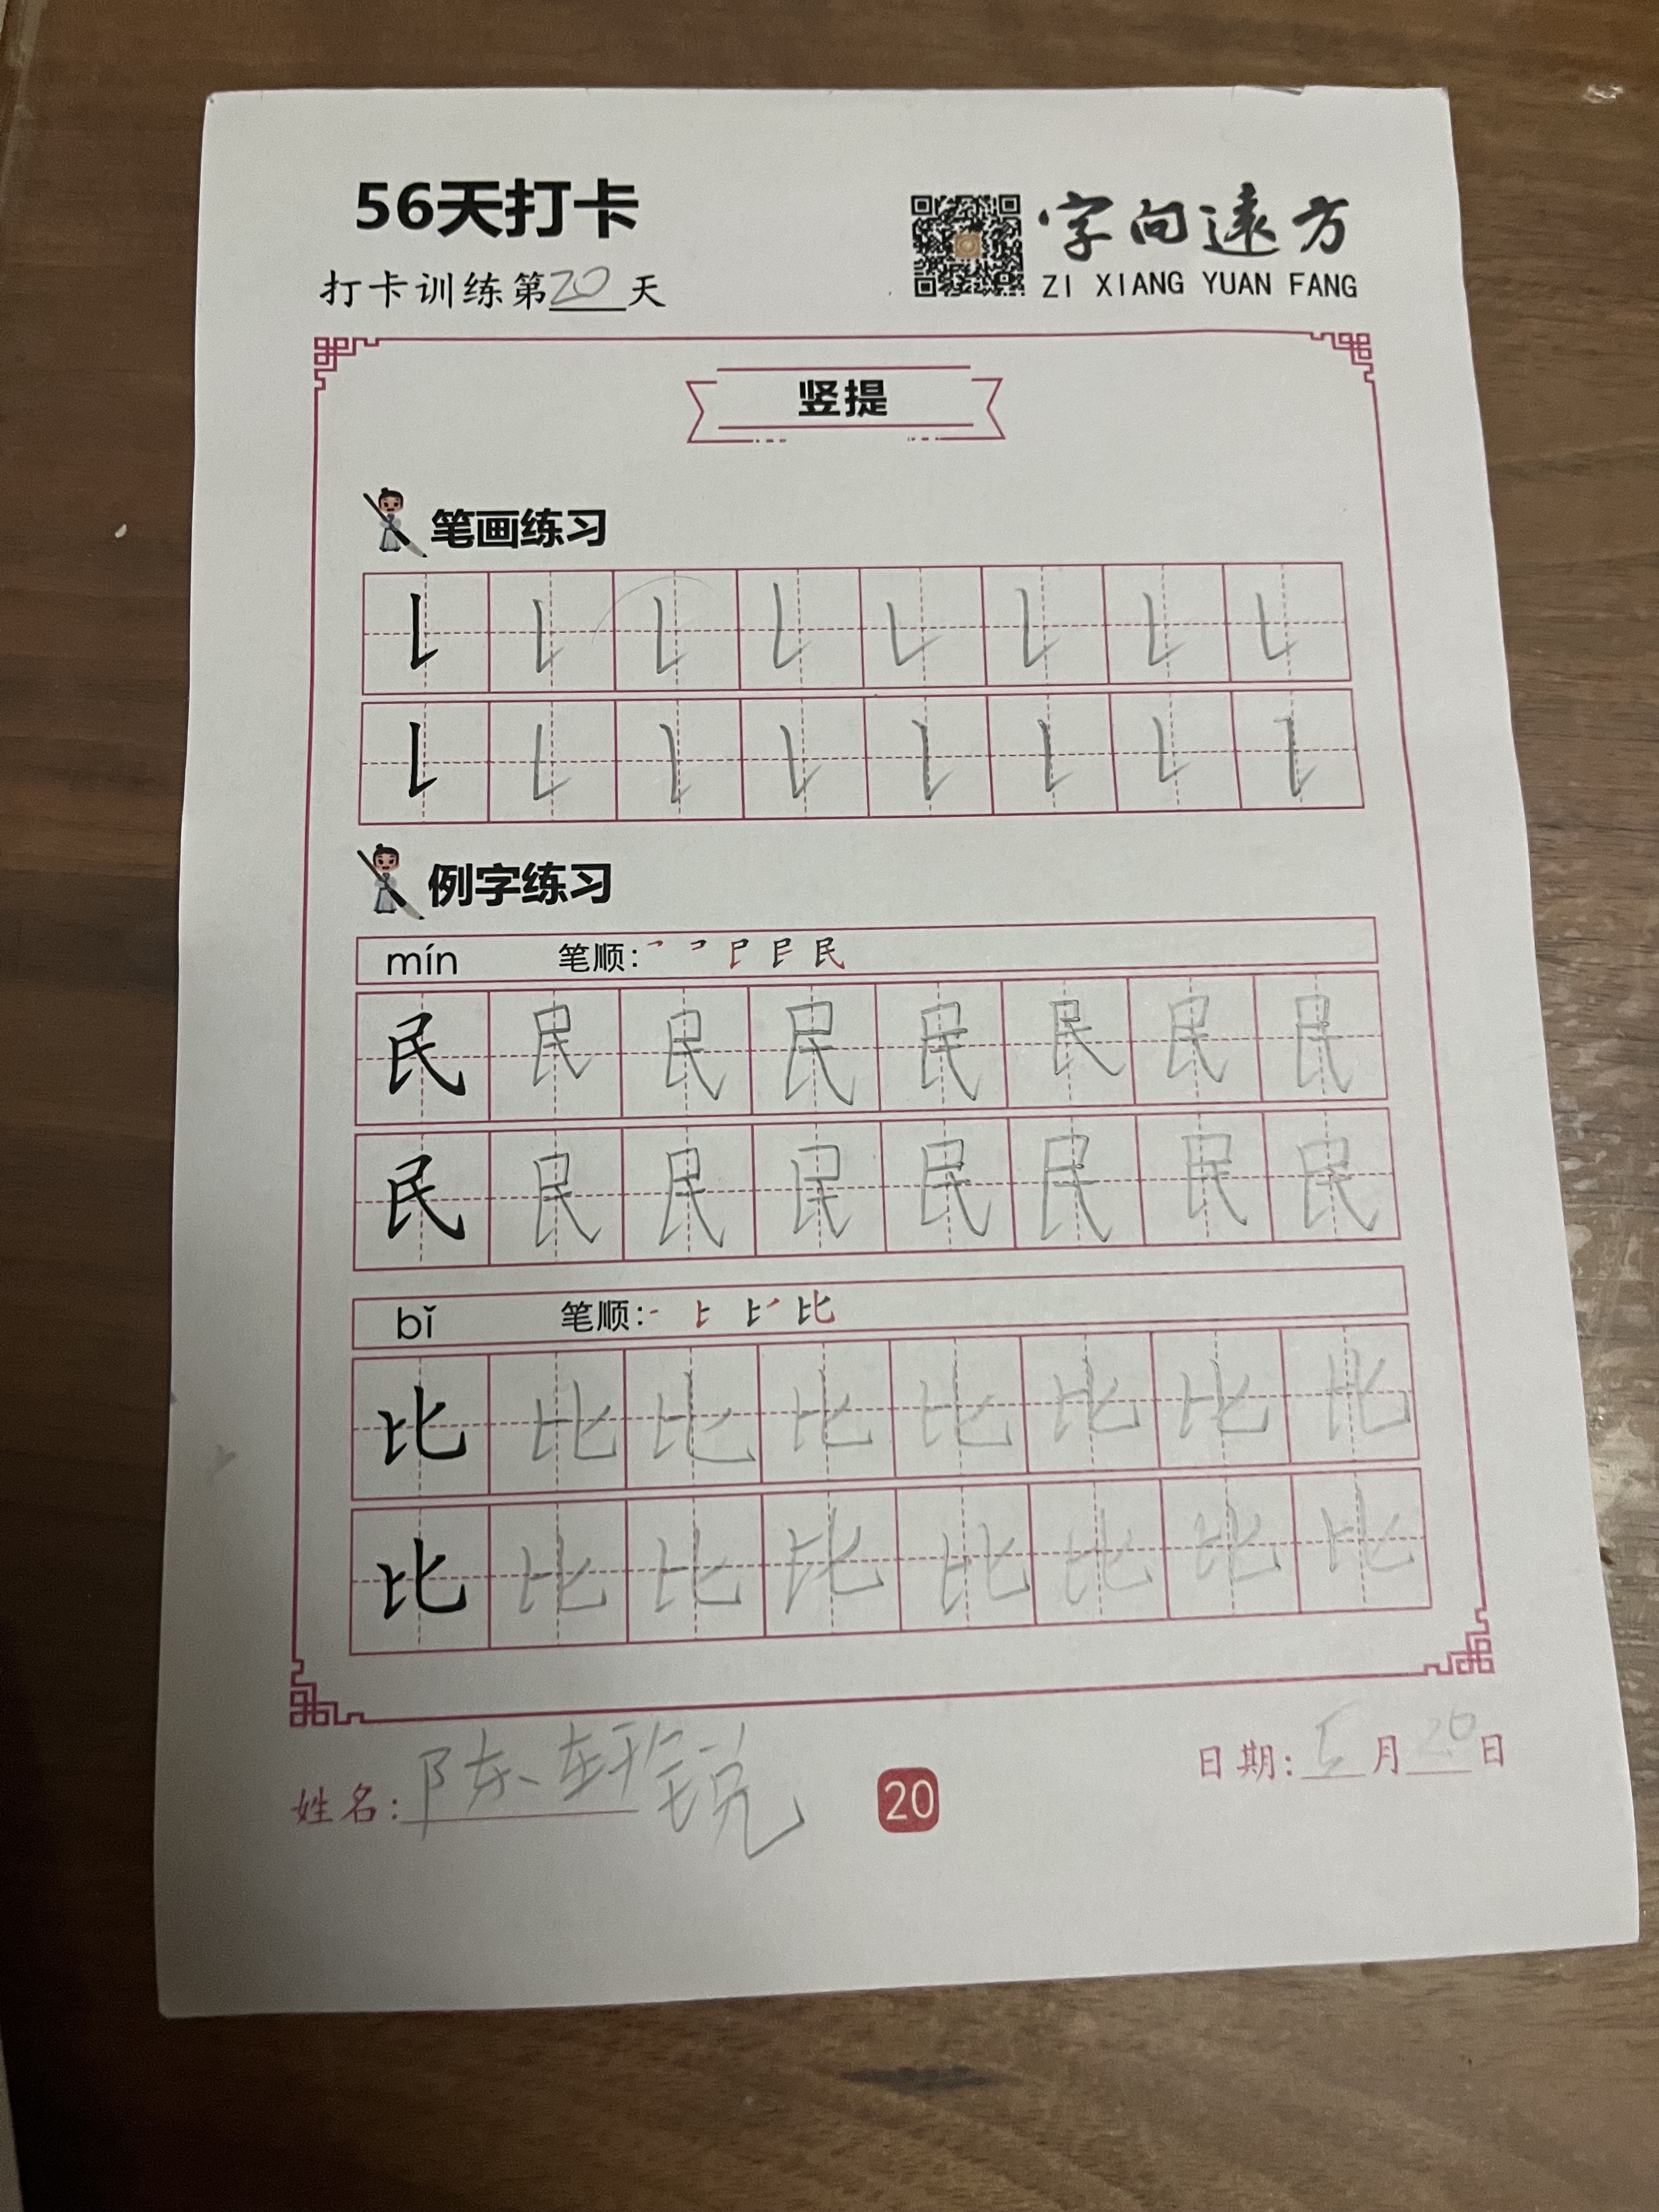 56天打卡
字向远方
打卡训练第20天
ZI XIANG YUAN FANG
竖提
笔画练习
例字练习
mín 笔顺:
民 民 民 民 民 民 民 民
民 民 民 民 民 民 民 民
bǐ 笔顺:
比 比 比 比 比 比 比 比
比 比 比 比 比 比 比 比
姓名:陈轩锐
20
日期:5月26日